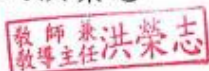 教師兼
教導主任洪榮志